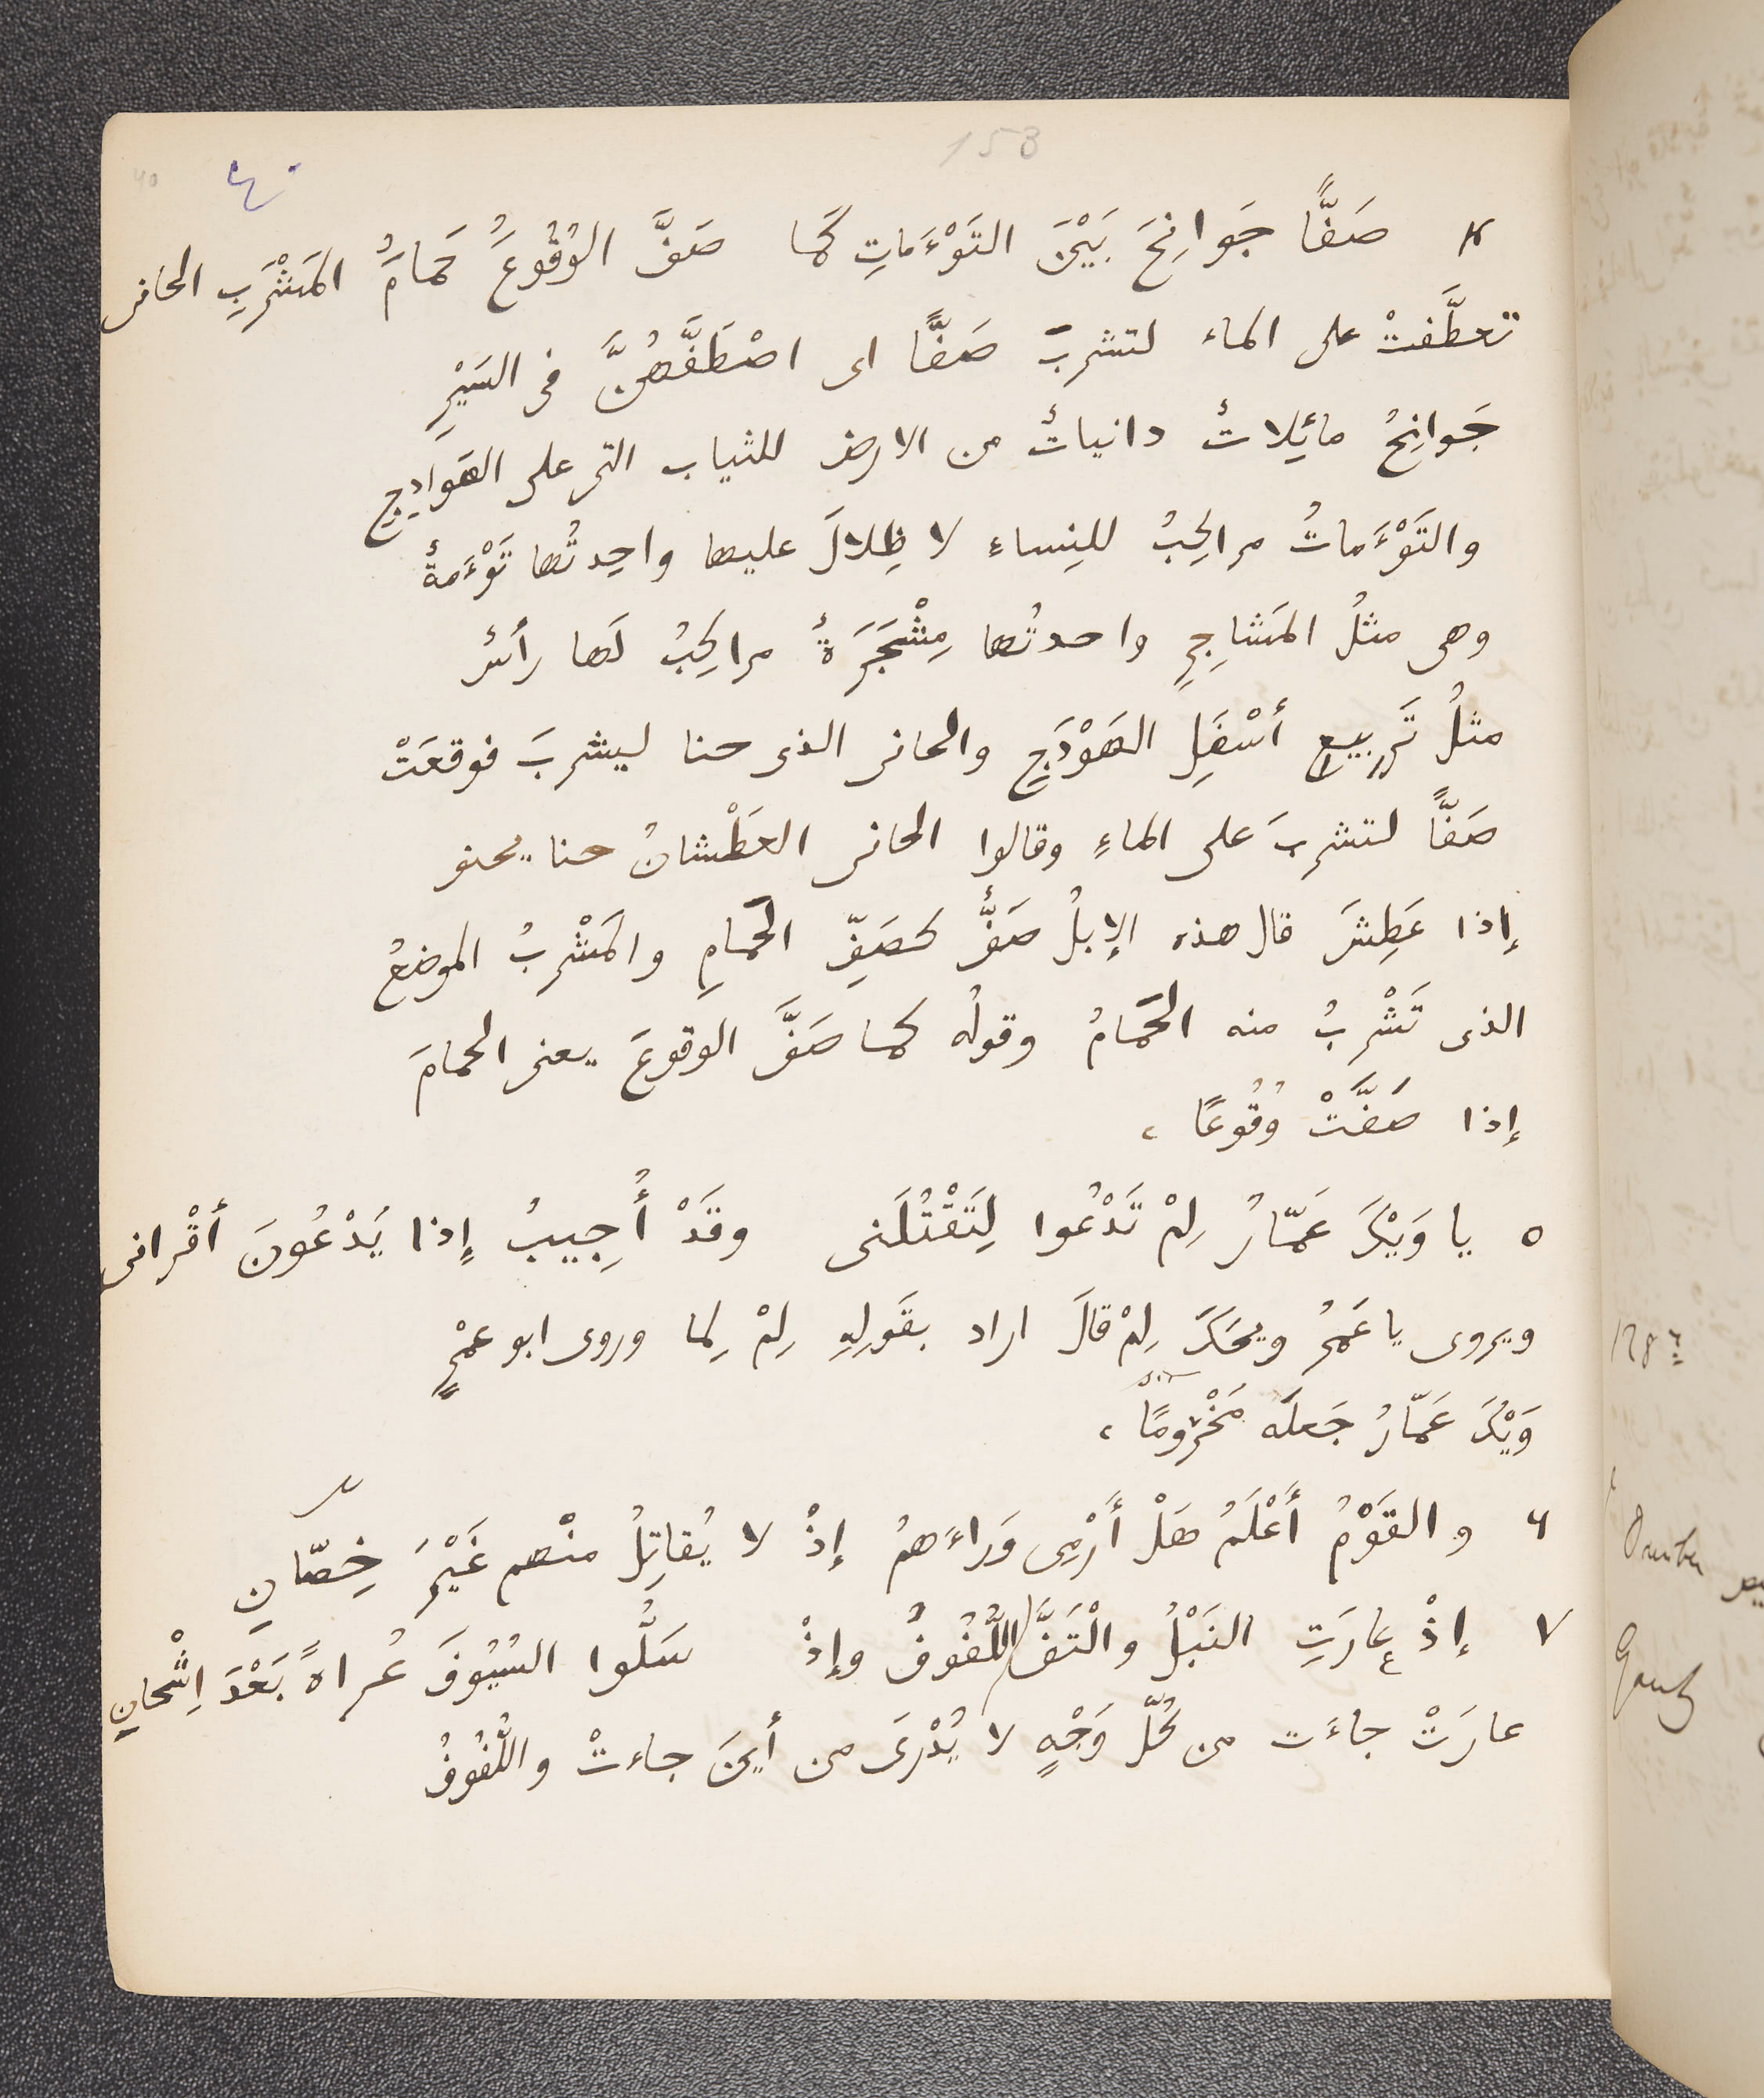 153
40 ٤٠
٤ صَفًّا جَوانِحَ بَيْنَ التَوْءَماتِ كَما صَفَّ الوُقُوعَُ حَمامَُ المَشْرَبِ الحانى
تعطَّفتْ على الماء لتشربَ صَفًّا اى اصْطَفَّهُنَّ فى السَيْرِ
جَوانِحُ مائِلاتٌ دانياتٌ من الارض للثياب التى على الهَوادِجِ
والتَوْءَماتُ مراكِبُ للنِساءِ لا ظِلالَ عليها واحِدتُها تَوْءَمةٌ
وهى مثلُ المَشاجِرِ واحدتُها مِشْجَرَةٌ مراكِبُ لَها رأسٌ
مثلُ تَربيعِ أسْفَلِ الهَوْدَجِ والحانى الذى حنا ليشربَ فوقعَتْ
صَفًّا لتشربَ على الماءِ وقالوا الحانى العَطْشانُ حنا يحنو
إذا عَطِشَ قال هذه الإبلُ صَفٌّ كصَفِّ الحَمامِ والمَشْرَبُ الموضعُ
الذى تَشْربُ منه الحَمامُ وقولُه كما صَفَّ الوقوعَ يعنى الحمامَ
إذا صَفَّتْ وُقُوعًا ،
٥ يا وَيْكَ عَمّارُ لِمْ تَدْعُوا لِتَقْتُلَنى وقَدْ أُجِيبُ إذا يَدْعُونَ أقْرانى
ويروى يا عَمْرُ ويحَكَ لِمْ قالَ اراد بقَولِهِ لِمْ لِما وروى ابو عمْرٍ
وَيْكَ عَمّارُ جَعلَه مَخْرُومًا ،
٦ والقَوْمُ أَعْلَمُ هَلْ أَرْمِى وَراءَهمُ إذْ لا يُقاتِلُ منْهم غَيْرَ خِصّانِ
٧ إذْ عارَتِ النَبْلُ والْتَفَّ اللُّفُوفُ وإذْ سَلُّوا السُيُوفَ عُراةً بَعْدَ اِشْحانِ
عارَتْ جاءَت من كُلّ وَجْهٍ لا يُدْرَى من أينَ جاءتْ واللُّفُوفُ